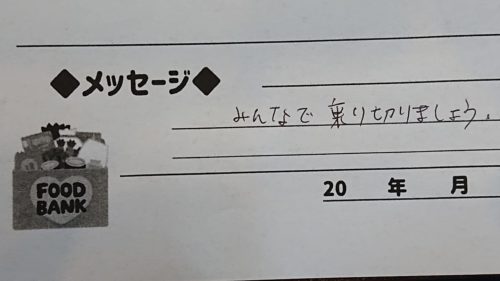 ◆メッセージ◆
みんなで乗り切りましょう。
FOOD
BANK
20 年 月